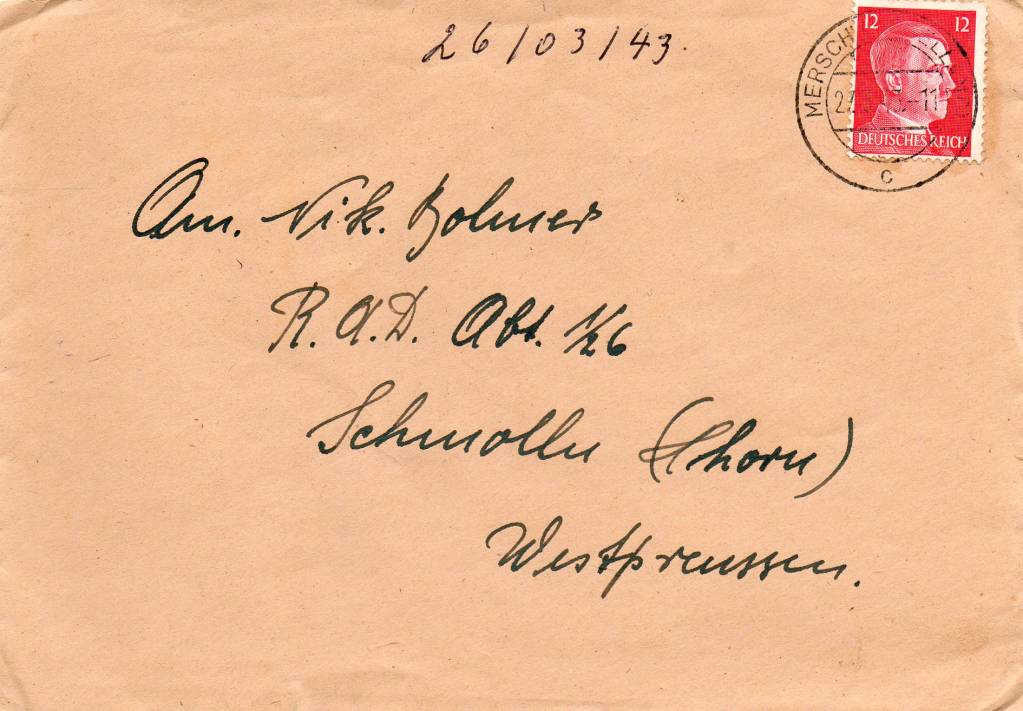 26/03/43.
12 12
MERSCH
DEUTSCHES REICH
c
Am. Nik. Bolmer
R.A.D. Abt. 1/26
Schmolln (Thorn)
Westpreussen.